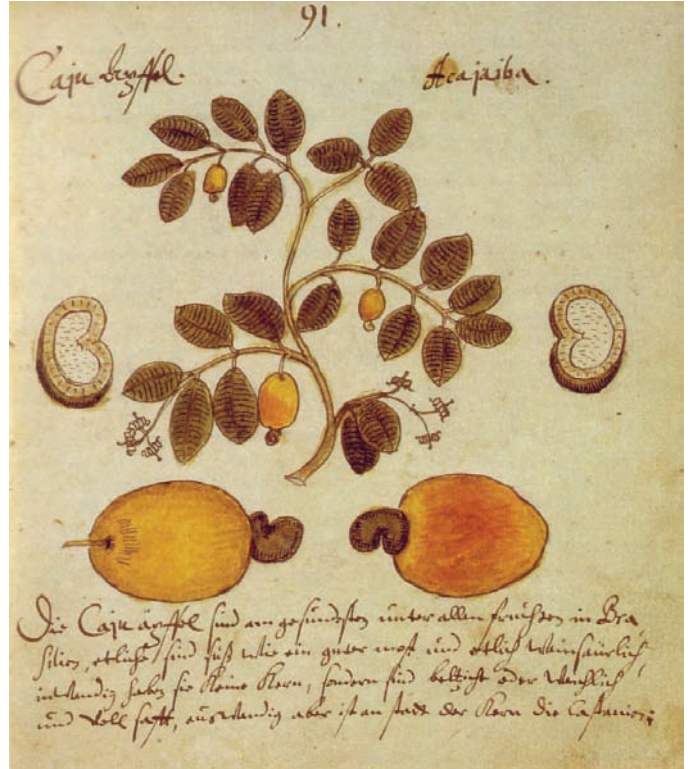 91.
Caju äpffel. Acajaiba.
Die Caju äpffel sind am gesündesten unter allen früchten in Bra
silien, etliche sind süß wie ein guter most und etlich Wainsäurlich,
inwendig haben sie keine Kern, sondern sind beltzicht oder
und voll safft, auswendig aber ist an stadt der Kern die